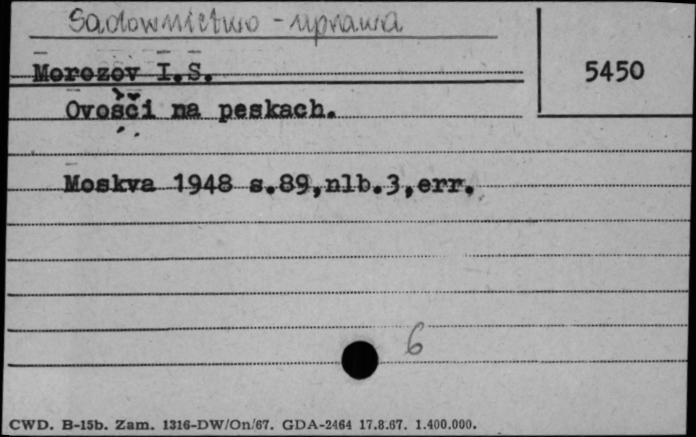 Sadownictwo - uprawa
5450
Morozov I.S.
Ovošči na peskach.
Moskva 1948 s.89,nlb.3,err.
6
CWD. B-15b. Zam. 1316-DW/On/67. GDA-2464 17.8.67. 1.400.000.